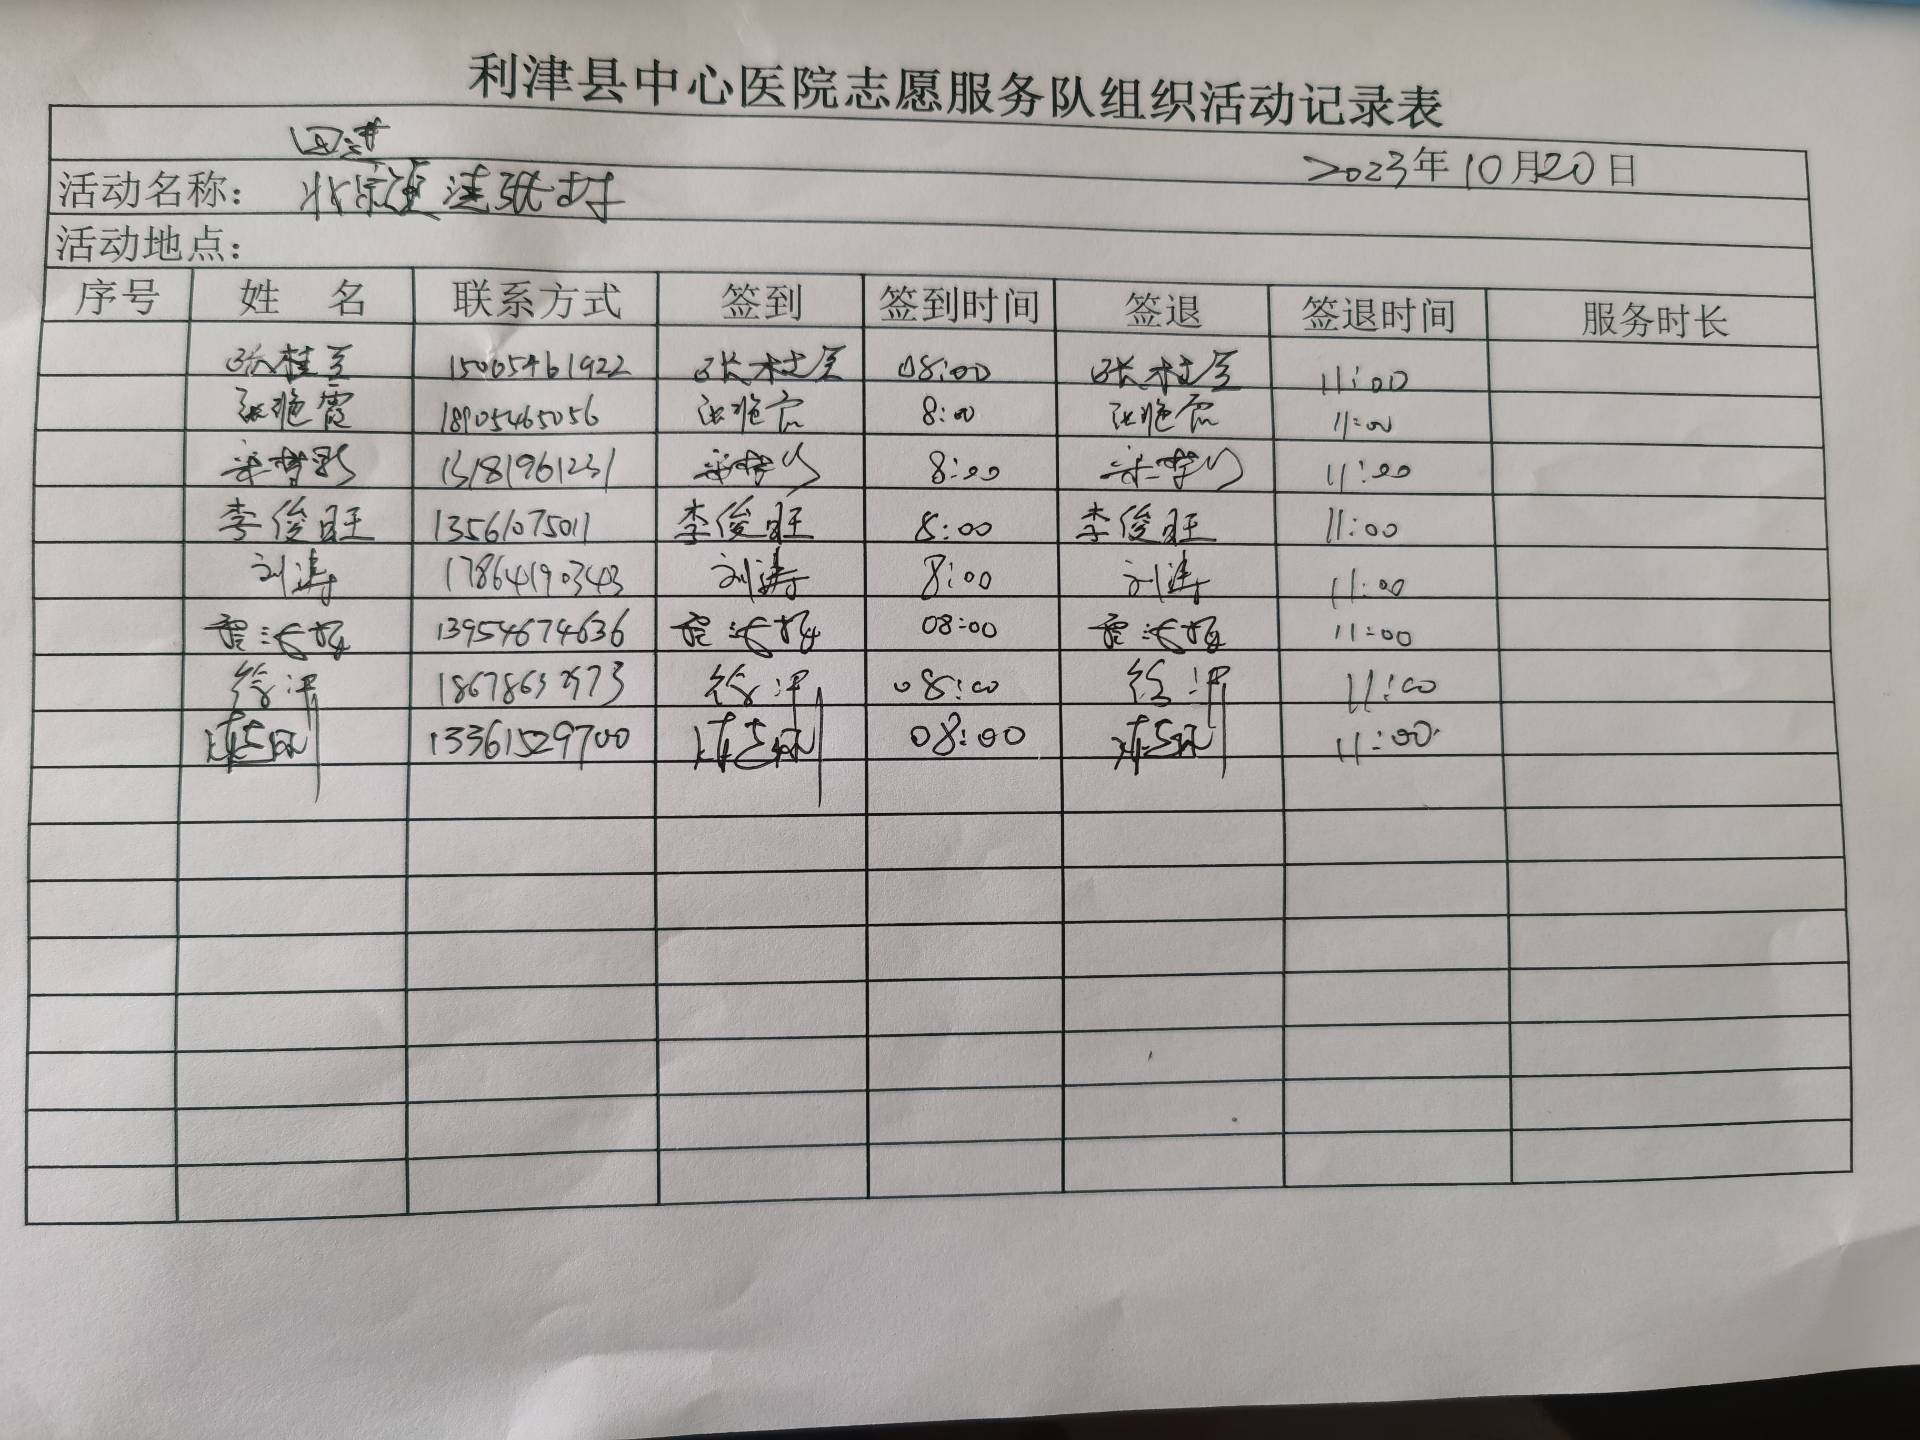 利津县中心医院志愿服务队组织活动记录表
2023年10月20日
活动名称：
活动地点：
序号 姓 名 联系方式 签到 签到时间 签退 签退时间 服务时长
张桂兰 15065461922 张桂兰 08:00 张桂兰 11:00
张艳霞 18905465056 张艳霞 8:00 张艳霞 11:00
13181961231 8:00 11:00
李俊旺 13561075011 李俊旺 8:00 李俊旺 11:00
刘涛 17864190343 刘涛 8:00 刘涛 11:00
13954674636 08:00 11:00
徐 08:00 徐 11:00
13361529700 08:00 11:00